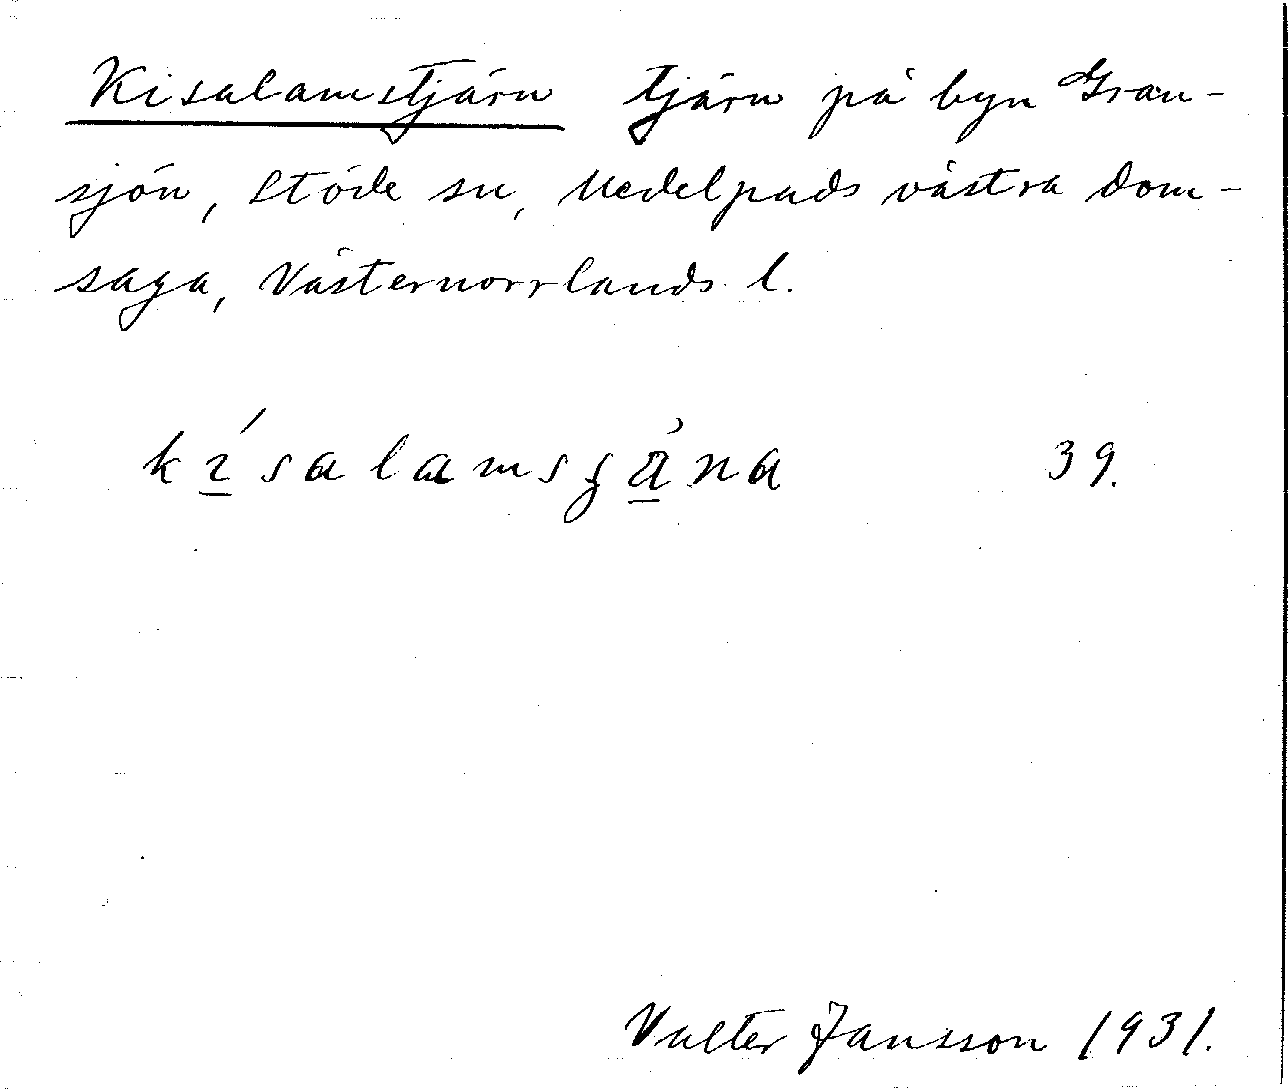 Kisalamstjärn tjärn på byn Gran-
sjön, Stöde sn, Medelpads västra dom-
saga, Västernorrlands l.
39.
Valter Jansson 1931.